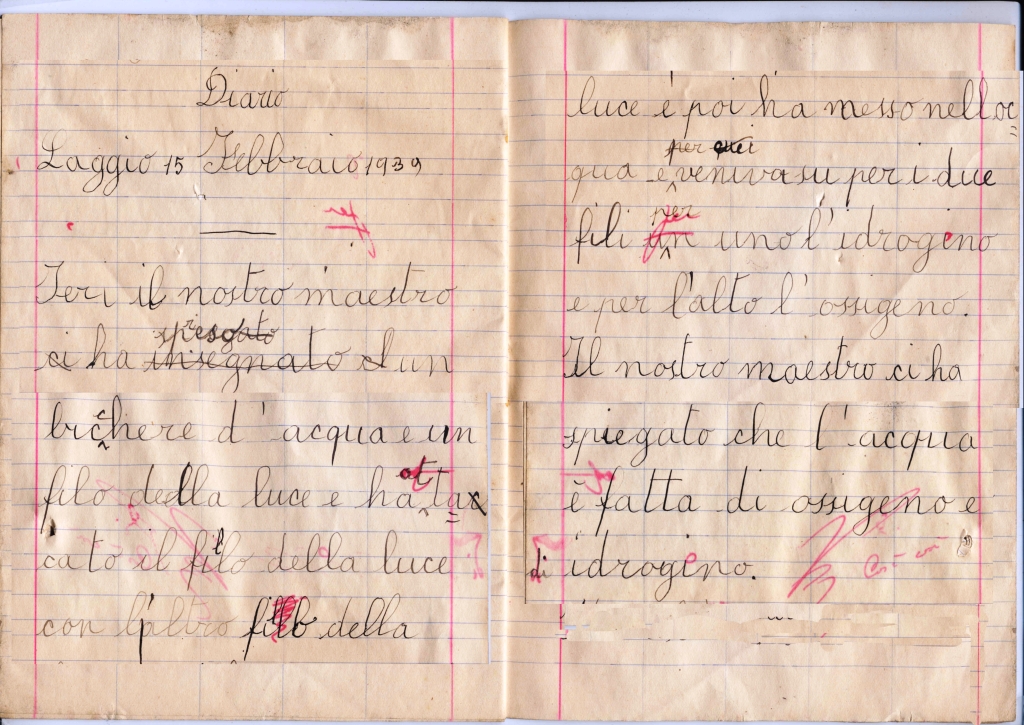 Diario
Laggio 15 Febbraio 1939
Ieri il nostro maestro
spiegato
ci ha insegnato d un
bicchere d' acqua e un
filo della luce e ha attac
cato il filo della luce
con l'altro filo della
luce e poi ha messo nell'ac
per
qua e veniva su per i due
per
fili un uno l' idrogeno
e per l'alto l' ossigeno.
Il nostro maestro ci ha
spiegato che l' acqua
è fatta di ossigeno e
di idrogeno.